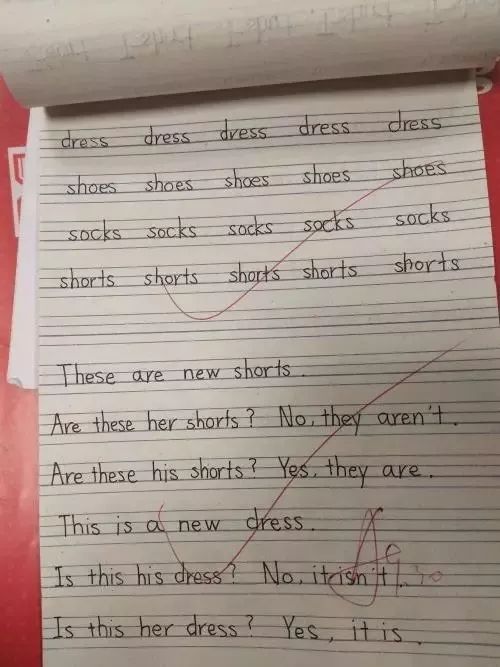 dress dress dress dress dress
shoes shoes shoes shoes shoes
socks socks socks socks socks
shorts shorts shorts shorts shorts
These are new shorts.
Are these her shorts? No, they aren't.
Are these his shorts? Yes, they are.
This is a new dress.
Is this his dress? No, it isn't.
Is this her dress? Yes, it is.